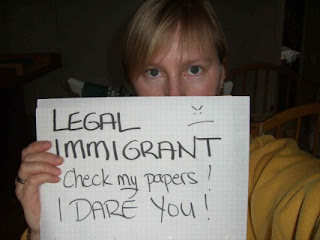 LEGAL
IMMIGRANT
Check my papers!
I DARE YOU!